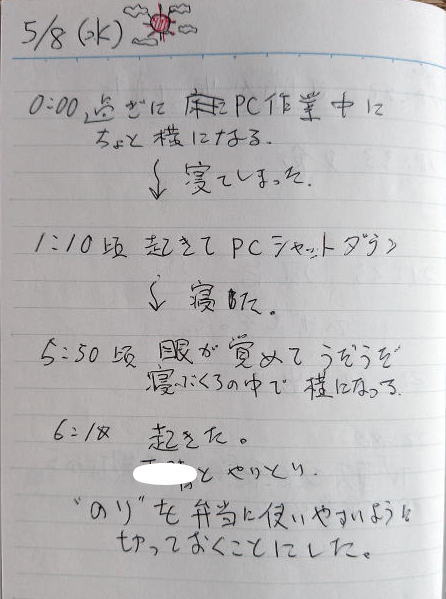 5/8 (水)
0:00 過ぎに PC作業中に
ちょと横になる.
↓ 寝てしまった.
1:10頃 起きて PCシャットダウン
↓ 寝た。
5:50頃 眼が覚めて うぞうぞ
寝ぶくろの中で 横になってる.
6:18 起きた。
と やりとり.
"のり"を弁当に使いやすいように
切っておくことにした。